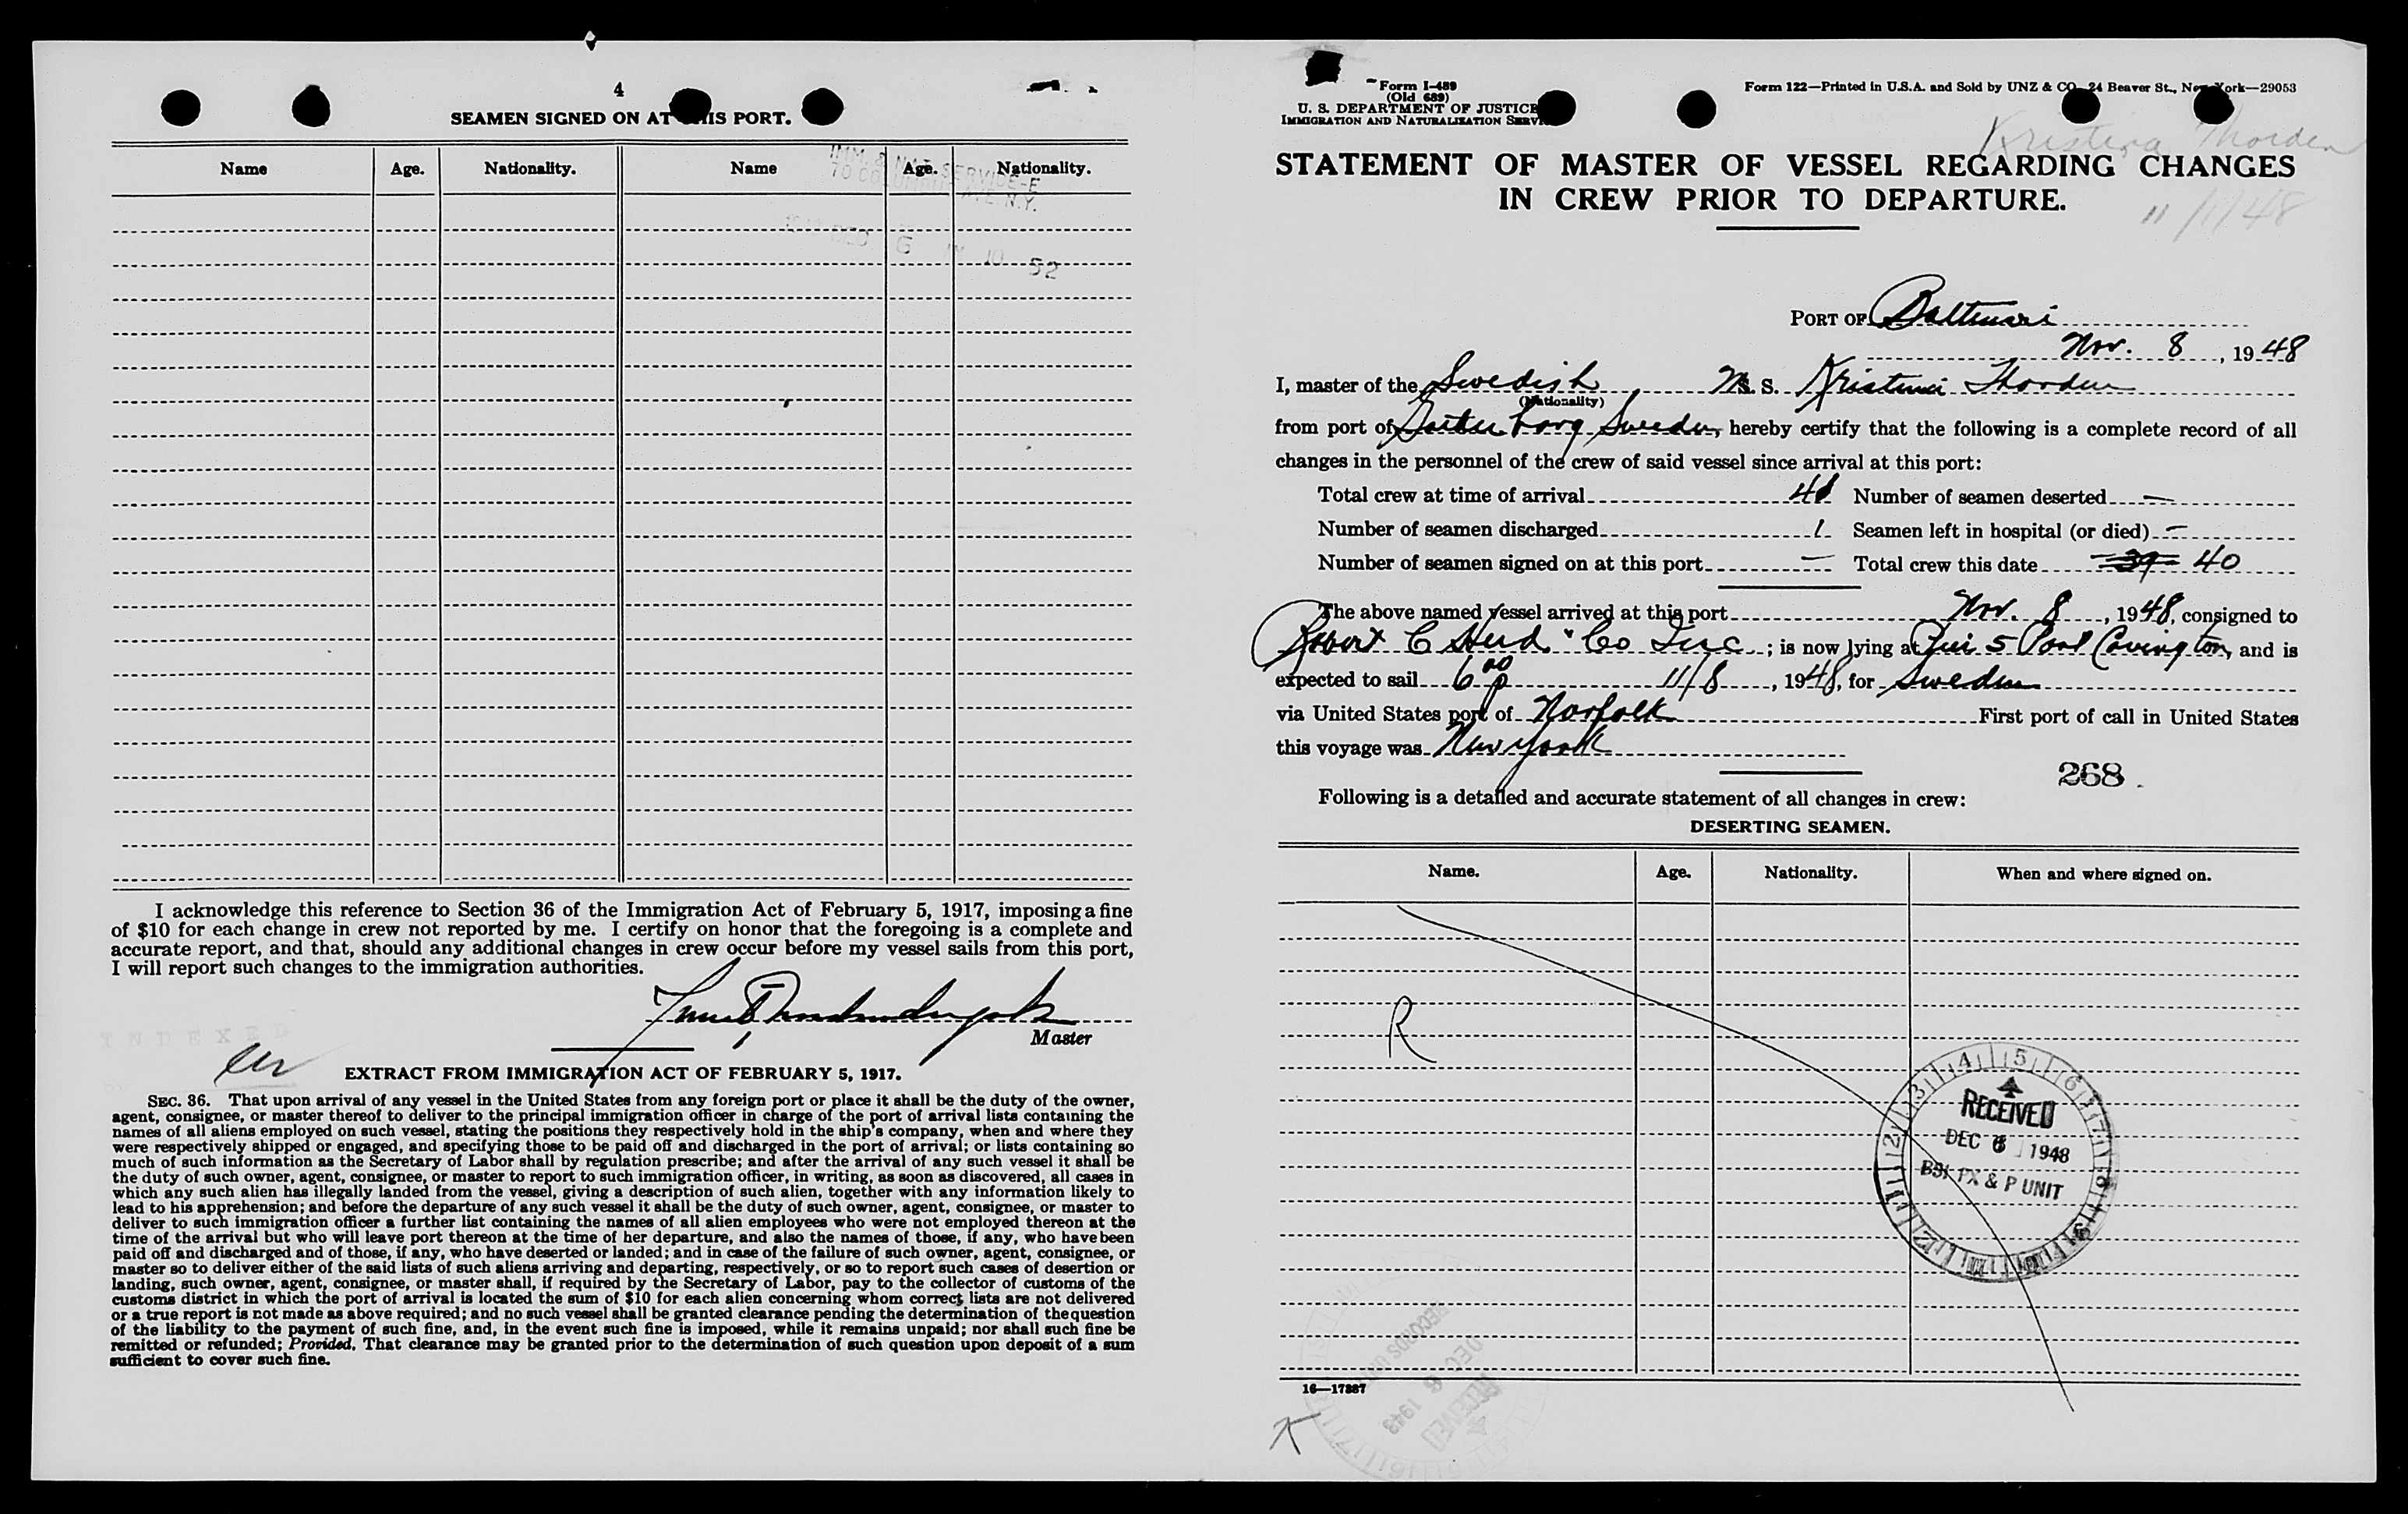 4
SEAMEN SIGNED ON AT THIS PORT.
Name Age. Nationality. Name Age. Nationality.
IMM. & NAT. SERVICE-E
70 COLUMBUS AVE. N.Y.
1948 DEC 6 10 52
I acknowledge this reference to Section 36 of the Immigration Act of February 5, 1917, imposing a fine
of $10 for each change in crew not reported by me. I certify on honor that the foregoing is a complete and
accurate report, and that, should any additional changes in crew occur before my vessel sails from this port,
I will report such changes to the immigration authorities.
Master
INDEXED
EXTRACT FROM IMMIGRATION ACT OF FEBRUARY 5, 1917.
SEC. 36. That upon arrival of any vessel in the United States from any foreign port or place it shall be the duty of the owner,
agent, consignee, or master thereof to deliver to the principal immigration officer in charge of the port of arrival lists containing the
names of all aliens employed on such vessel, stating the positions they respectively hold in the ship's company, when and where they
were respectively shipped or engaged, and specifying those to be paid off and discharged in the port of arrival; or lists containing so
much of such information as the Secretary of Labor shall by regulation prescribe; and after the arrival of any such vessel it shall be
the duty of such owner, agent, consignee, or master to report to such immigration officer, in writing, as soon as discovered, all cases in
which any such alien has illegally landed from the vessel, giving a description of such alien, together with any information likely to
lead to his apprehension; and before the departure of any such vessel it shall be the duty of such owner, agent, consignee, or master to
deliver to such immigration officer a further list containing the names of all alien employees who were not employed thereon at the
time of the arrival but who will leave port thereon at the time of her departure, and also the names of those, if any, who have been
paid off and discharged and of those, if any, who have deserted or landed; and in case of the failure of such owner, agent, consignee, or
master so to deliver either of the said lists of such aliens arriving and departing, respectively, or so to report such cases of desertion or
landing, such owner, agent, consignee, or master shall, if required by the Secretary of Labor, pay to the collector of customs of the
customs district in which the port of arrival is located the sum of $10 for each alien concerning whom correct lists are not delivered
or a true report is not made as above required; and no such vessel shall be granted clearance pending the determination of the question
of the liability to the payment of such fine, and, in the event such fine is imposed, while it remains unpaid; nor shall such fine be
remitted or refunded; Provided, That clearance may be granted prior to the determination of such question upon deposit of a sum
sufficient to cover such fine.
Form I-489
(Old 689)
U. S. DEPARTMENT OF JUSTICE
IMMIGRATION AND NATURALIZATION SERVICE
Form 122—Printed in U.S.A. and Sold by UNZ & CO. 24 Beaver St., New York—29053
Kristina Thorden
STATEMENT OF MASTER OF VESSEL REGARDING CHANGES
IN CREW PRIOR TO DEPARTURE.
11/1/48
PORT OF Baltimore
Nov. 8, 1948
I, master of the Swedish M. S. Kristina Thorden
(Nationality)
from port of Gothenburg Sweden, hereby certify that the following is a complete record of all
changes in the personnel of the crew of said vessel since arrival at this port:
Total crew at time of arrival 41 Number of seamen deserted —
Number of seamen discharged 1 Seamen left in hospital (or died) —
Number of seamen signed on at this port — Total crew this date 39 40
The above named vessel arrived at this port Nov. 8, 1948, consigned to
Robert C Herd & Co Inc; is now lying at Pier 5 Port Covington, and is
expected to sail 6 00 p 11/8, 1948, for Sweden
via United States port of Norfolk First port of call in United States
this voyage was New York
268
Following is a detailed and accurate statement of all changes in crew:
DESERTING SEAMEN.
Name. Age. Nationality. When and where signed on.
R
RECEIVED
DEC 6 1948
BSI TX & P UNIT
16—17887
RECEIVED
DEC 6 1948
RECORDS UNIT
K